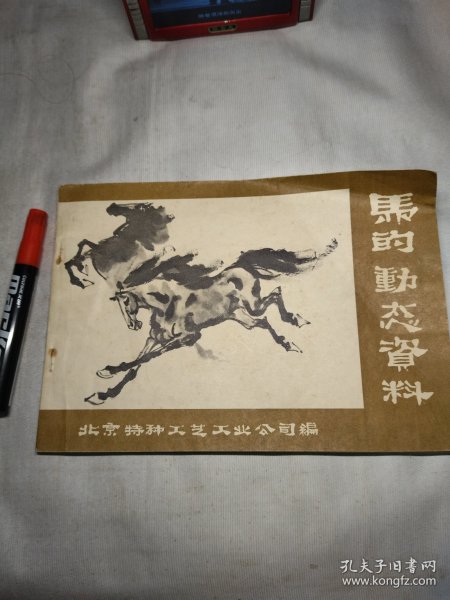 馬的動态資料
北京特种工艺工业公司编
mark
孔夫子旧书网
www.kongfz.com